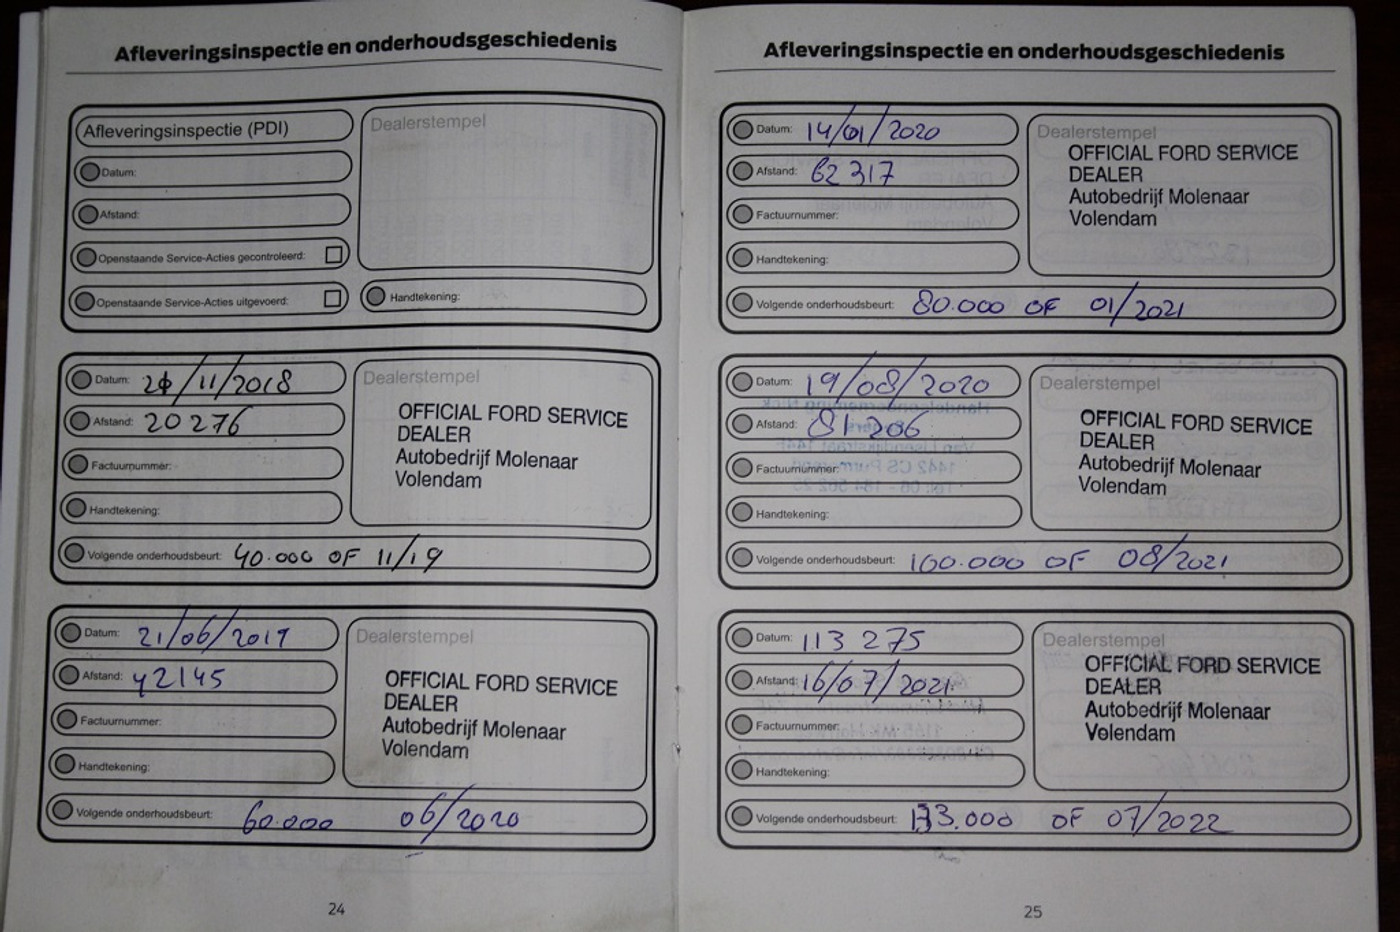 Afleveringsinspectie en onderhoudsgeschiedenis
Afleveringsinspectie (PDI)
Datum:
Afstand:
Openstaande Service-Acties gecontroleerd:
Openstaande Service-Acties uitgevoerd:
Dealerstempel
Handtekening:
Datum: 21/11/2018
Afstand: 20276
Factuurnummer:
Handtekening:
Dealerstempel
OFFICIAL FORD SERVICE
DEALER
Autobedrijf Molenaar
Volendam
Volgende onderhoudsbeurt: 40.000 OF 11/19
Datum: 21/06/2019
Afstand: 42145
Factuurnummer:
Handtekening:
Dealerstempel
OFFICIAL FORD SERVICE
DEALER
Autobedrijf Molenaar
Volendam
Volgende onderhoudsbeurt: 60.000 06/2020
24
Afleveringsinspectie en onderhoudsgeschiedenis
Datum: 14/01/2020
Afstand: 62317
Factuurnummer:
Handtekening:
Dealerstempel
OFFICIAL FORD SERVICE
DEALER
Autobedrijf Molenaar
Volendam
Volgende onderhoudsbeurt: 80.000 OF 01/2021
Datum: 19/08/2020
Afstand: 81206
Factuurnummer:
Handtekening:
Dealerstempel
OFFICIAL FORD SERVICE
DEALER
Autobedrijf Molenaar
Volendam
Volgende onderhoudsbeurt: 100.000 OF 08/2021
Datum: 113 275
Afstand: 16/07/2021
Factuurnummer:
Handtekening:
Dealerstempel
OFFICIAL FORD SERVICE
DEALER
Autobedrijf Molenaar
Volendam
Volgende onderhoudsbeurt: 133.000 OF 07/2022
25